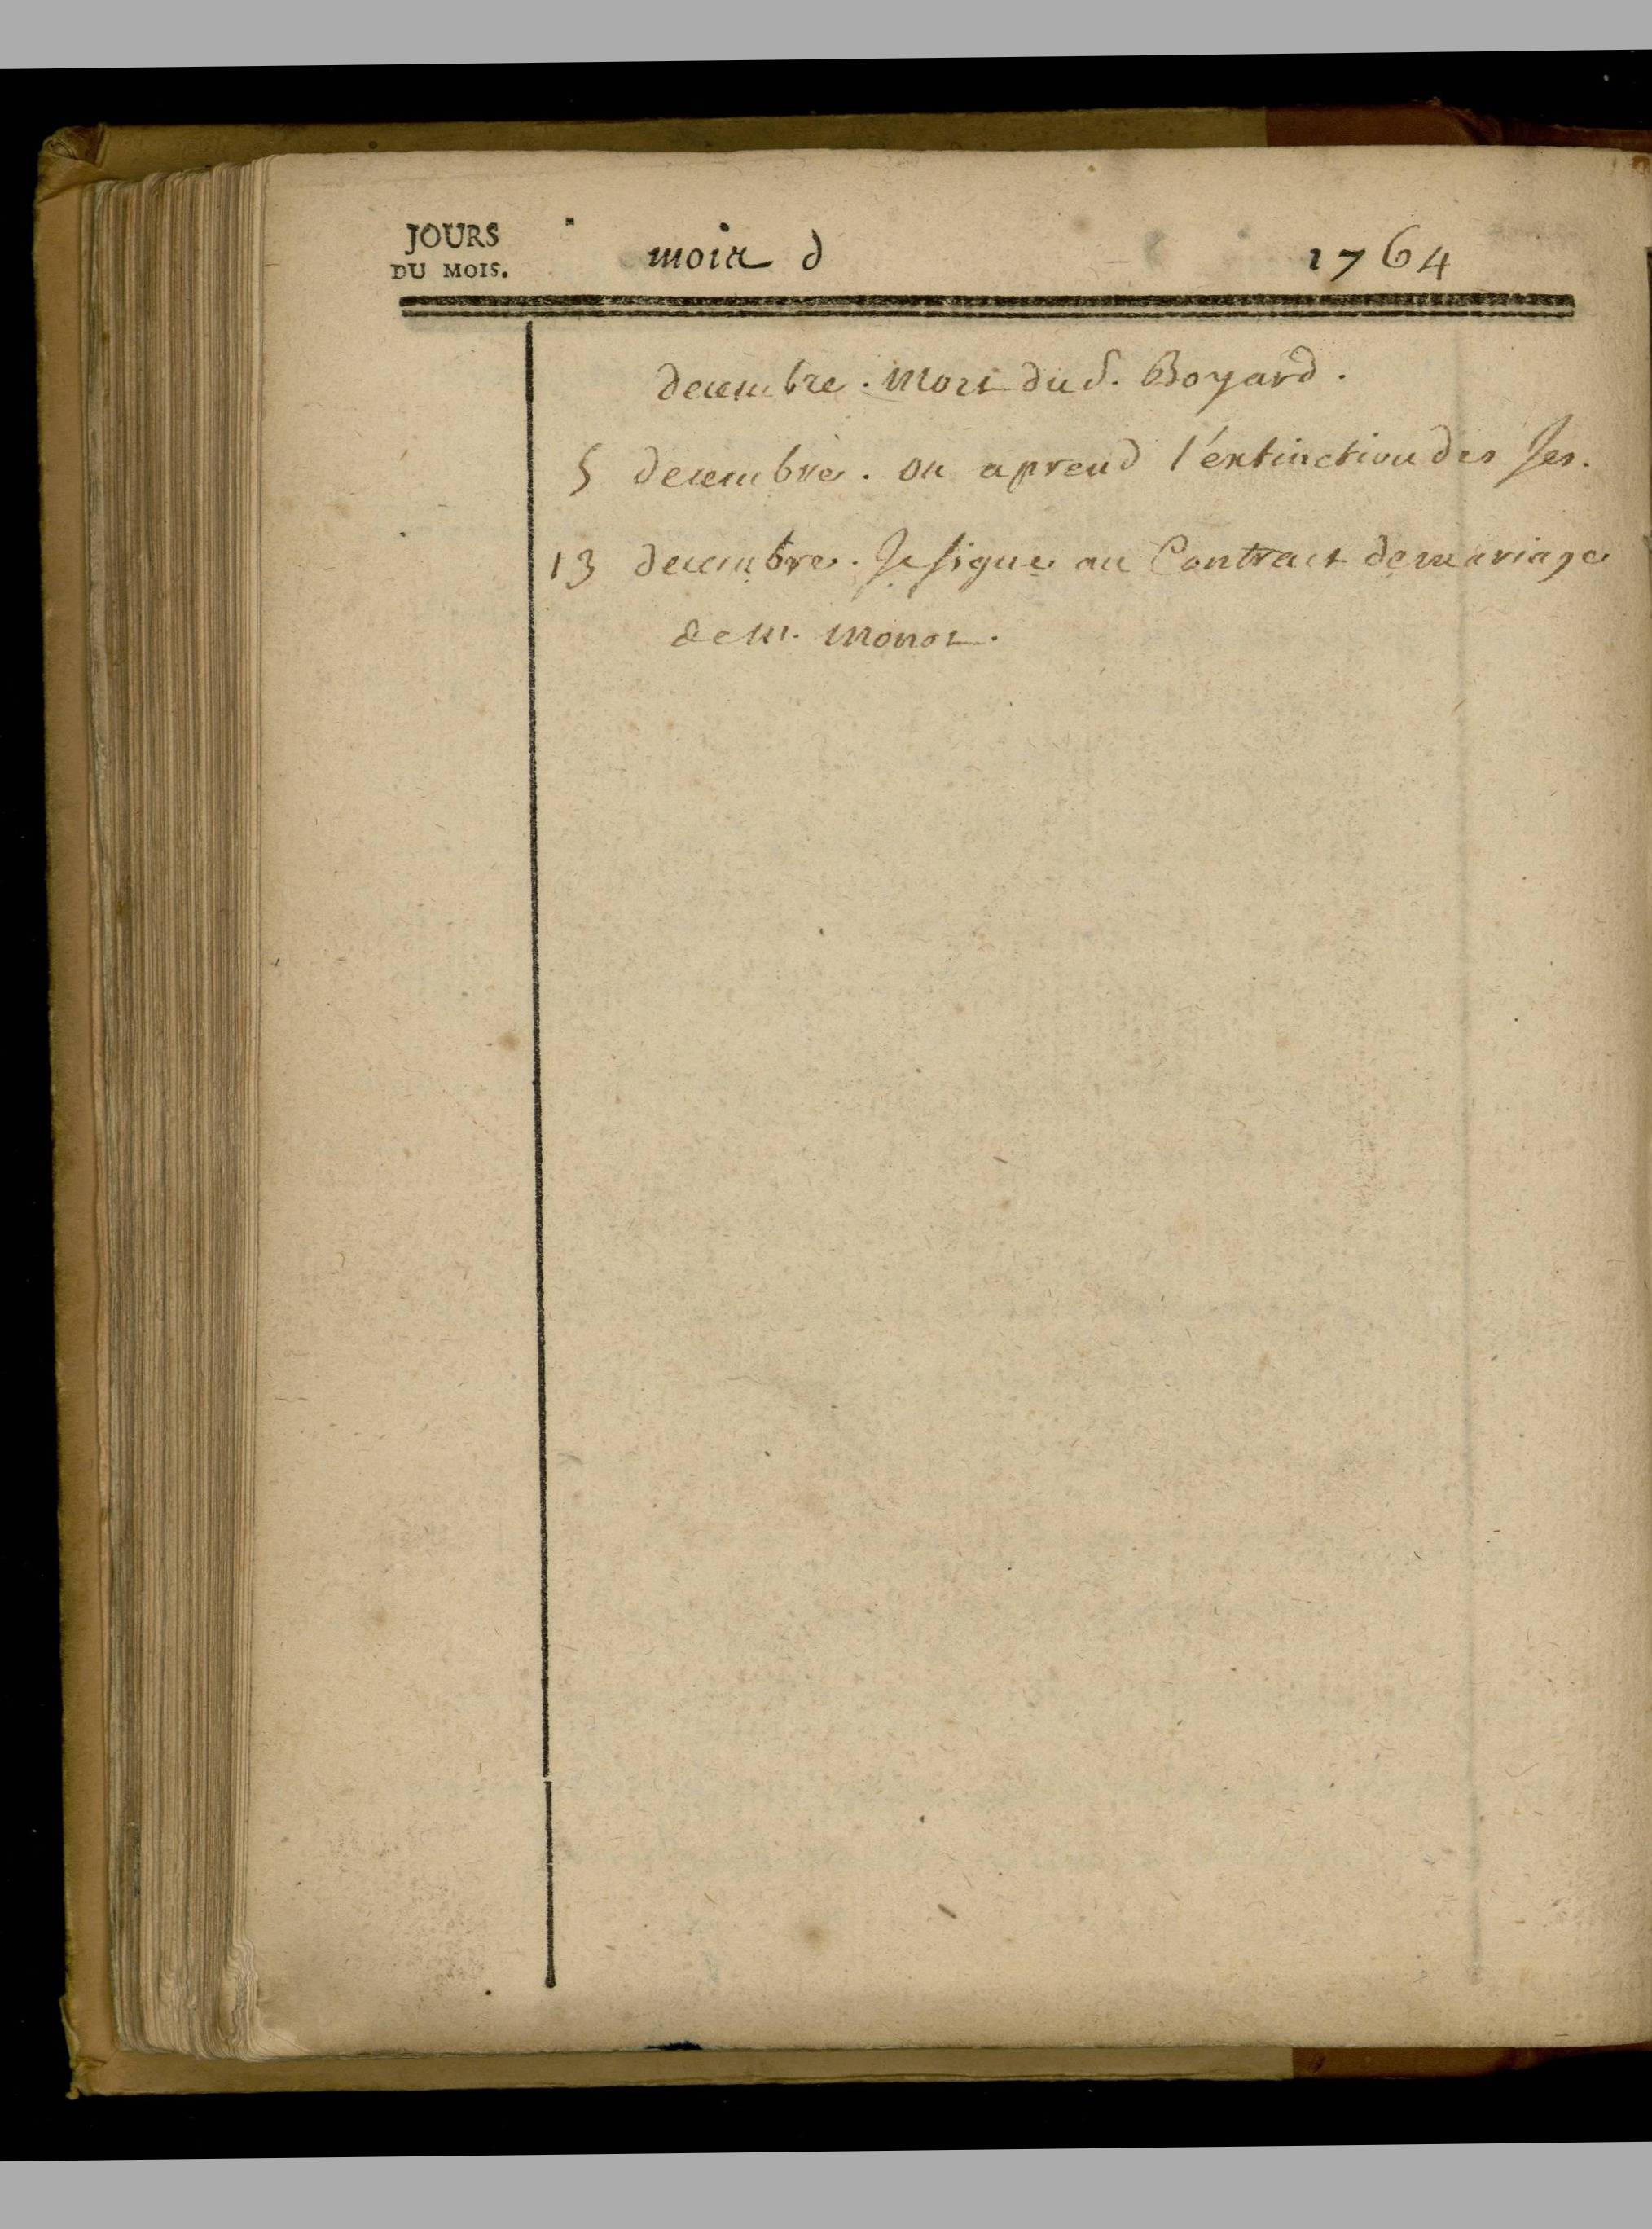 JOURS
DU MOIS.
mois d 1764
decembre. Mort du S. Boyard.
5 decembre. on aprend l'éxtinction des Jes.
13 decembre. Je signe au Contract de mariage
de M. Monot.